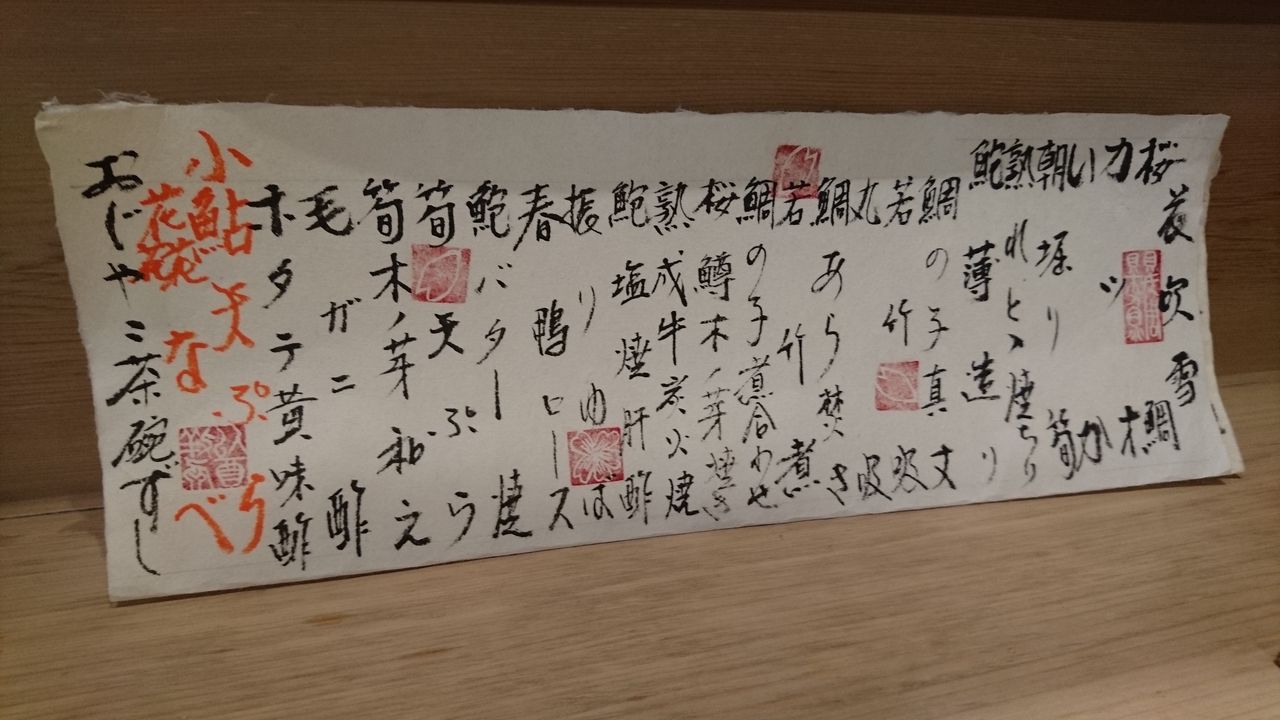 花吹雪
桜鯛
カツオ
いか
朝堀り筍
鮑薄造り
鯛の子真丈
若竹吸
丸吸
鯛あら焚き
若竹煮
鯛の子煮合わせ
桜鱒木ノ芽焼き
熟成牛炭火焼
鮑塩焼肝酢
振りゆば
春鴨ロース
鮑バター焼
筍天ぷら
筍木ノ芽和え
毛ガニ酢
ホタテ黄味酢
小鮎天ぷら
おじゃこ茶碗ずし